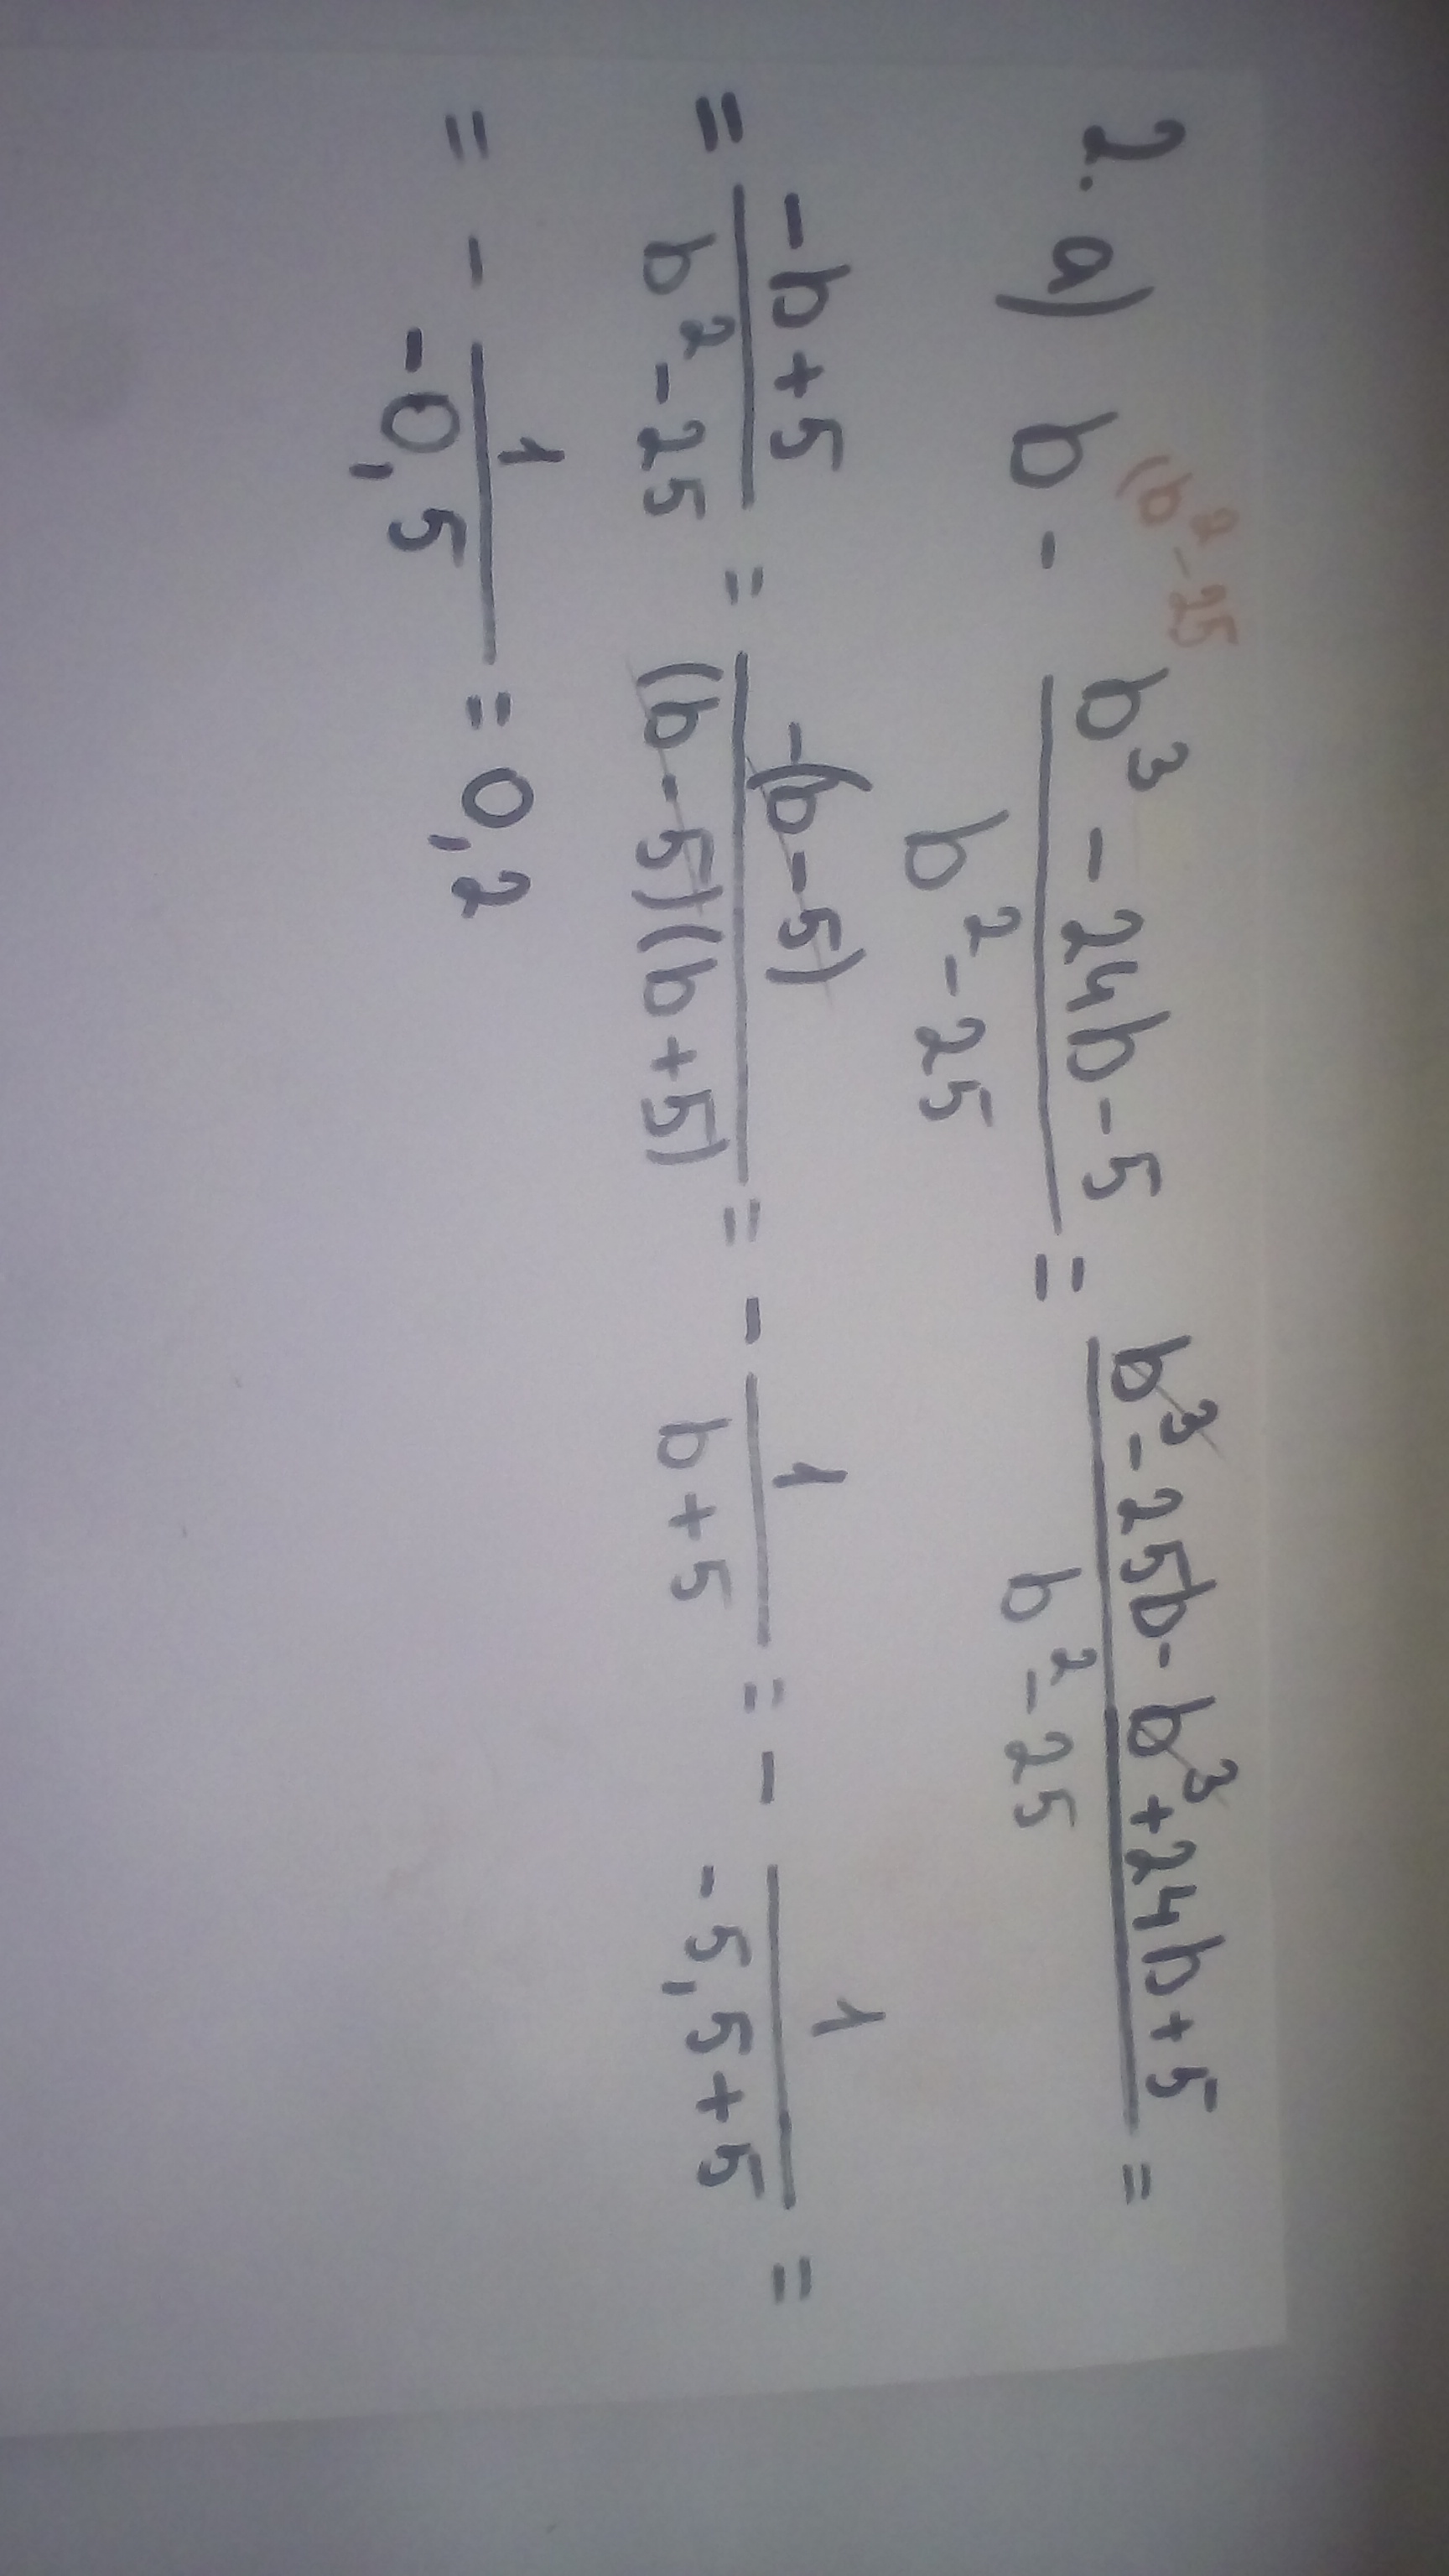 (b²-25
2. a) b - (b³ - 24b - 5)/(b² - 25) = (b³ - 25b - b³ + 24b + 5)/(b² - 25) =
= (-b + 5)/(b² - 25) = (-(b - 5))/((b - 5)(b + 5)) = - 1/(b + 5) = - 1/(-5,5 + 5) =
= - 1/(-0,5) = 0,2